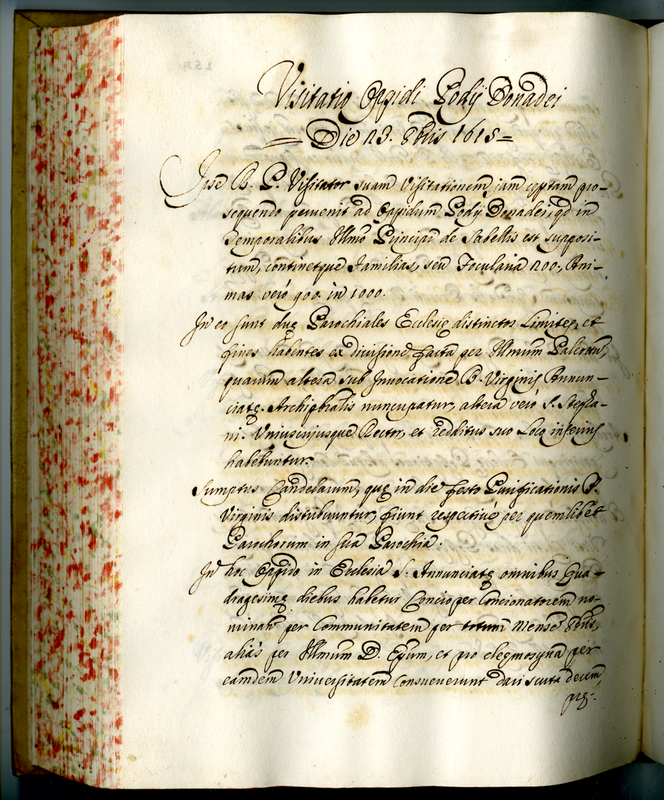 Visitatio Oppidi Podij Donadei
= Die 23. 8bris 1615 =
Ipse R. P. Visitator suam Visitationem iam ceptam pro-
sequendo pervenit ad Oppidum Podij Donadei, qd in
temporalibus Illmo Principi de Sabellis est supposi-
tum, continetque Familias, seu Focularia 200, Ani-
mas vero 900. in 1000.
In eo sunt duę Parochiales Ecclesię distinctos Limites, et
fines habentes ex divisione facta per Illmum Paleottum,
quarum altera sub Invocatione B. Virginis Annun-
ciatę Archipbralis nuncupatur, altera vero S. Stepha-
ni. Uniuscujusque Rector, et redditus suo Loco inferius
habebuntur.
Sumptus Candelarum, quę in die festo Purificationis B.
Virginis distribuuntur, fiunt respective per quemlibet
Parochorum in sua Parochia.
In hoc Oppido in Ecclesia S. Annunciatę omnibus Qua-
dragesimę diebus habetur Concio per Concionatorem no-
minatum per Communitatem per totum Mensem 8bris,
alias per Illmum D. Epum, et pro eleęmosyna per
eamdem Universitatem consueverunt dari scuta decem